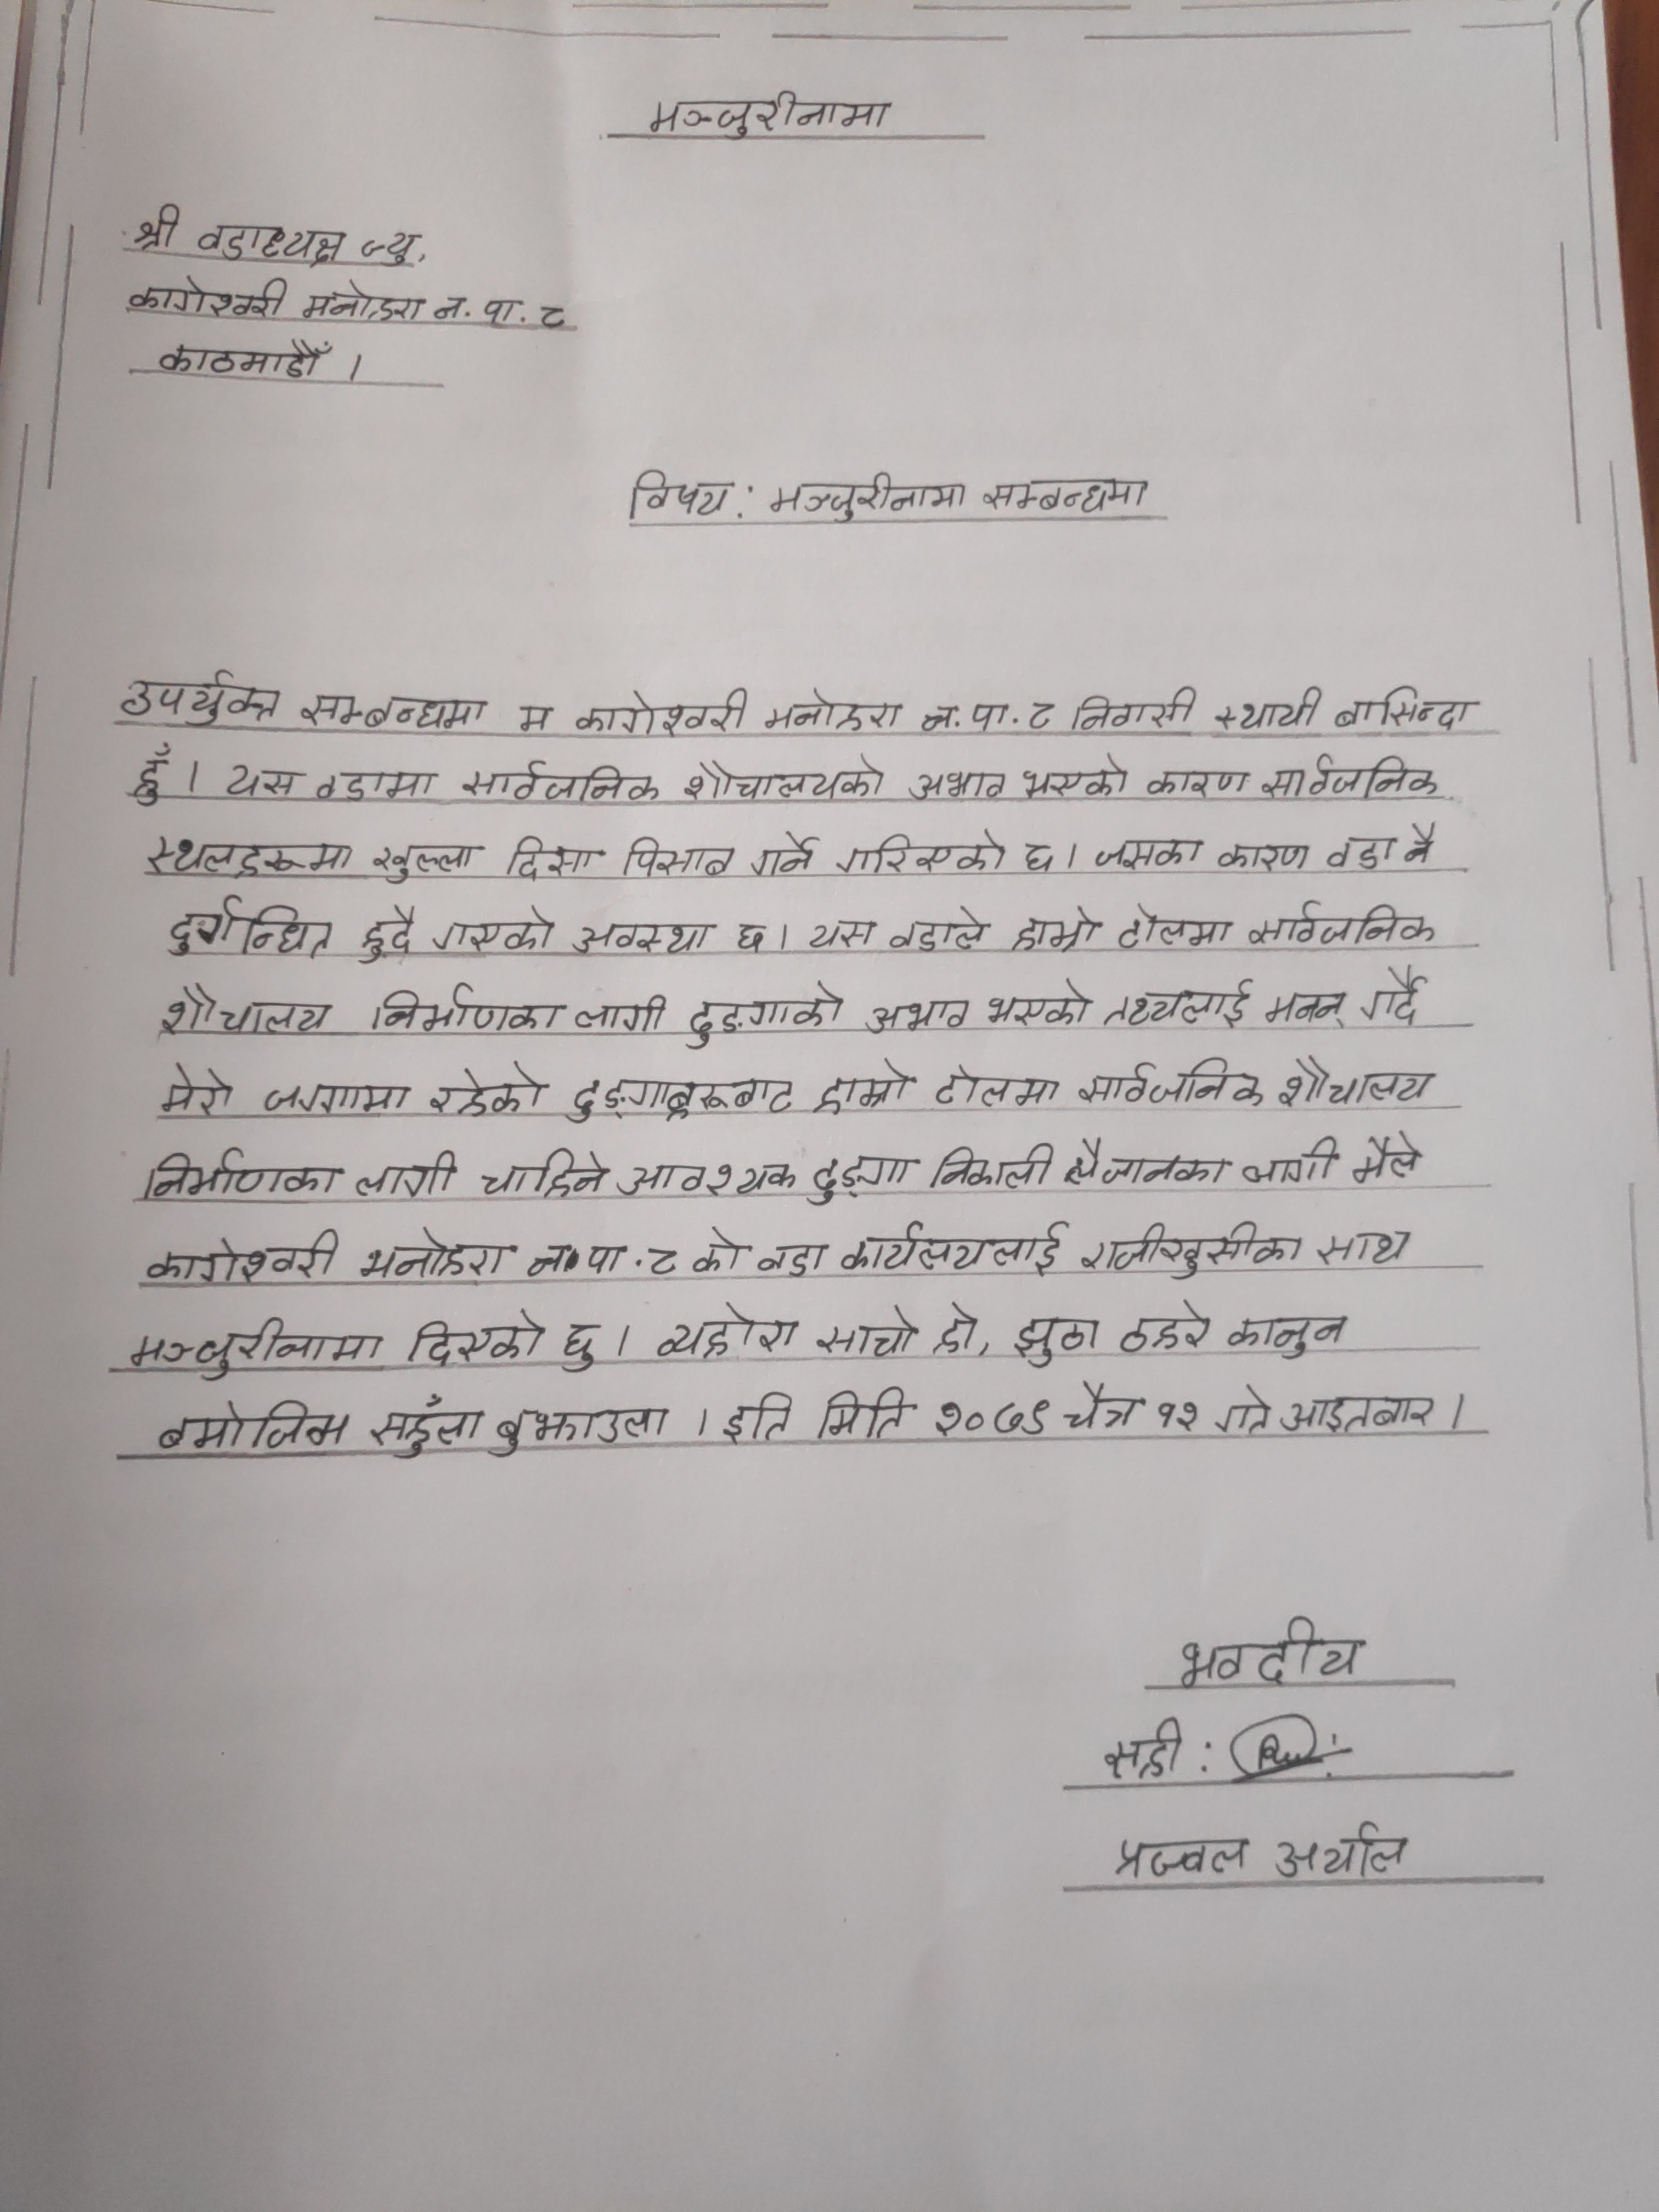 मञ्जुरीनामा
श्री वडाध्यक्ष ज्यु,
कागेश्वरी मनोहरा न. पा. ८
काठमाडौँ ।
विषय: मञ्जुरीनामा सम्बन्धमा
उपर्युक्त सम्बन्धमा म कागेश्वरी मनोहरा न.पा.८ निवासी स्थायी बासिन्दा
हुँ । यस वडामा सार्वजनिक शौचालयको अभाव भएको कारण सार्वजनिक
स्थलहरूमा खुल्ला दिसा पिसाब गर्ने गरिएको छ। जसका कारण वडा नै
दुर्गन्धित हुदै गएको अवस्था छ। यस वडाले हाम्रो टोलमा सार्वजनिक
शौचालय निर्माणका लागी ढुङ्गाको अभाव भएको तथ्यलाई मनन् गर्दै
मेरो जग्गामा रहेको ढुङ्गाहरूबाट हाम्रो टोलमा सार्वजनिक शौचालय
निर्माणका लागी चाहिने आवश्यक ढुङ्गा निकाली लैजानका लागी मैले
कागेश्वरी मनोहरा न.पा.८ को वडा कार्यलयलाई राजीखुसीका साथ
मञ्जुरीनामा दिएको छु । व्यहोरा साचो हो, झुठा ठहरे कानुन
बमोजिम सहुँला बुझाउला । इति मिति २०७९ चैत्र १२ गते आइतबार ।
भवदीय
सही :
प्रज्वल अर्याल